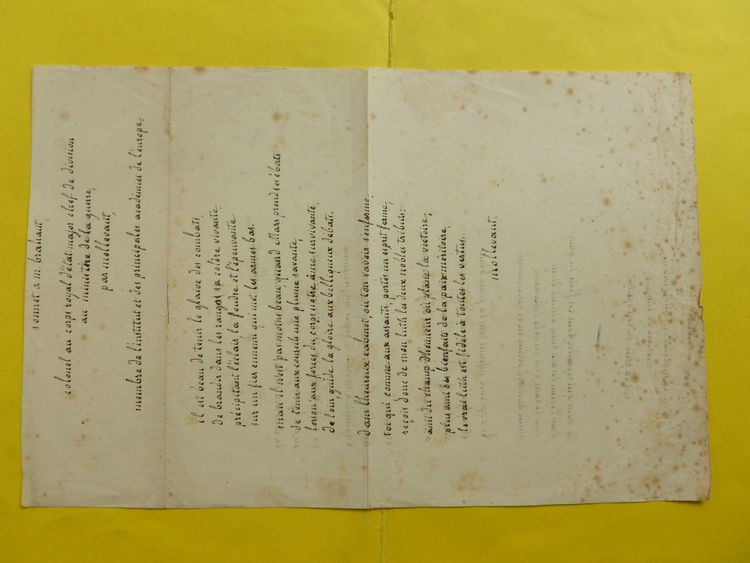 sonnet à m. brahaut,
colonel au corps royal d'état major chef de division
au ministère de la guerre,
par mollevaut,
membre de l'institut et des principales académies de l'europe.
il est beau de tenir le glaive des combats,
de brandir dans les rangs sa colère vivante,
précipitant l'éclair, la foudre et l'épouvante
sur un fier ennemi qui met les armes bas.
mais il n'est pas moins beau quand Mars prend ses ébats
de tenir aux conseils une plume savante,
lorsqu'aux forces du corps notre âme survivante,
de loin guide la gloire aux belliqueux débats.
dans l'heureux cabinet, où ton savoir s'enferme,
toi qui comme aux assauts, portes un esprit ferme,
reçois donc de mon luth les deux nobles tributs:
ami du champ d'honneur où plane la victoire,
plus ami des bienfaits de la paix méritoire,
le vrai luth est fidèle à toutes les vertus.
mollevaut.